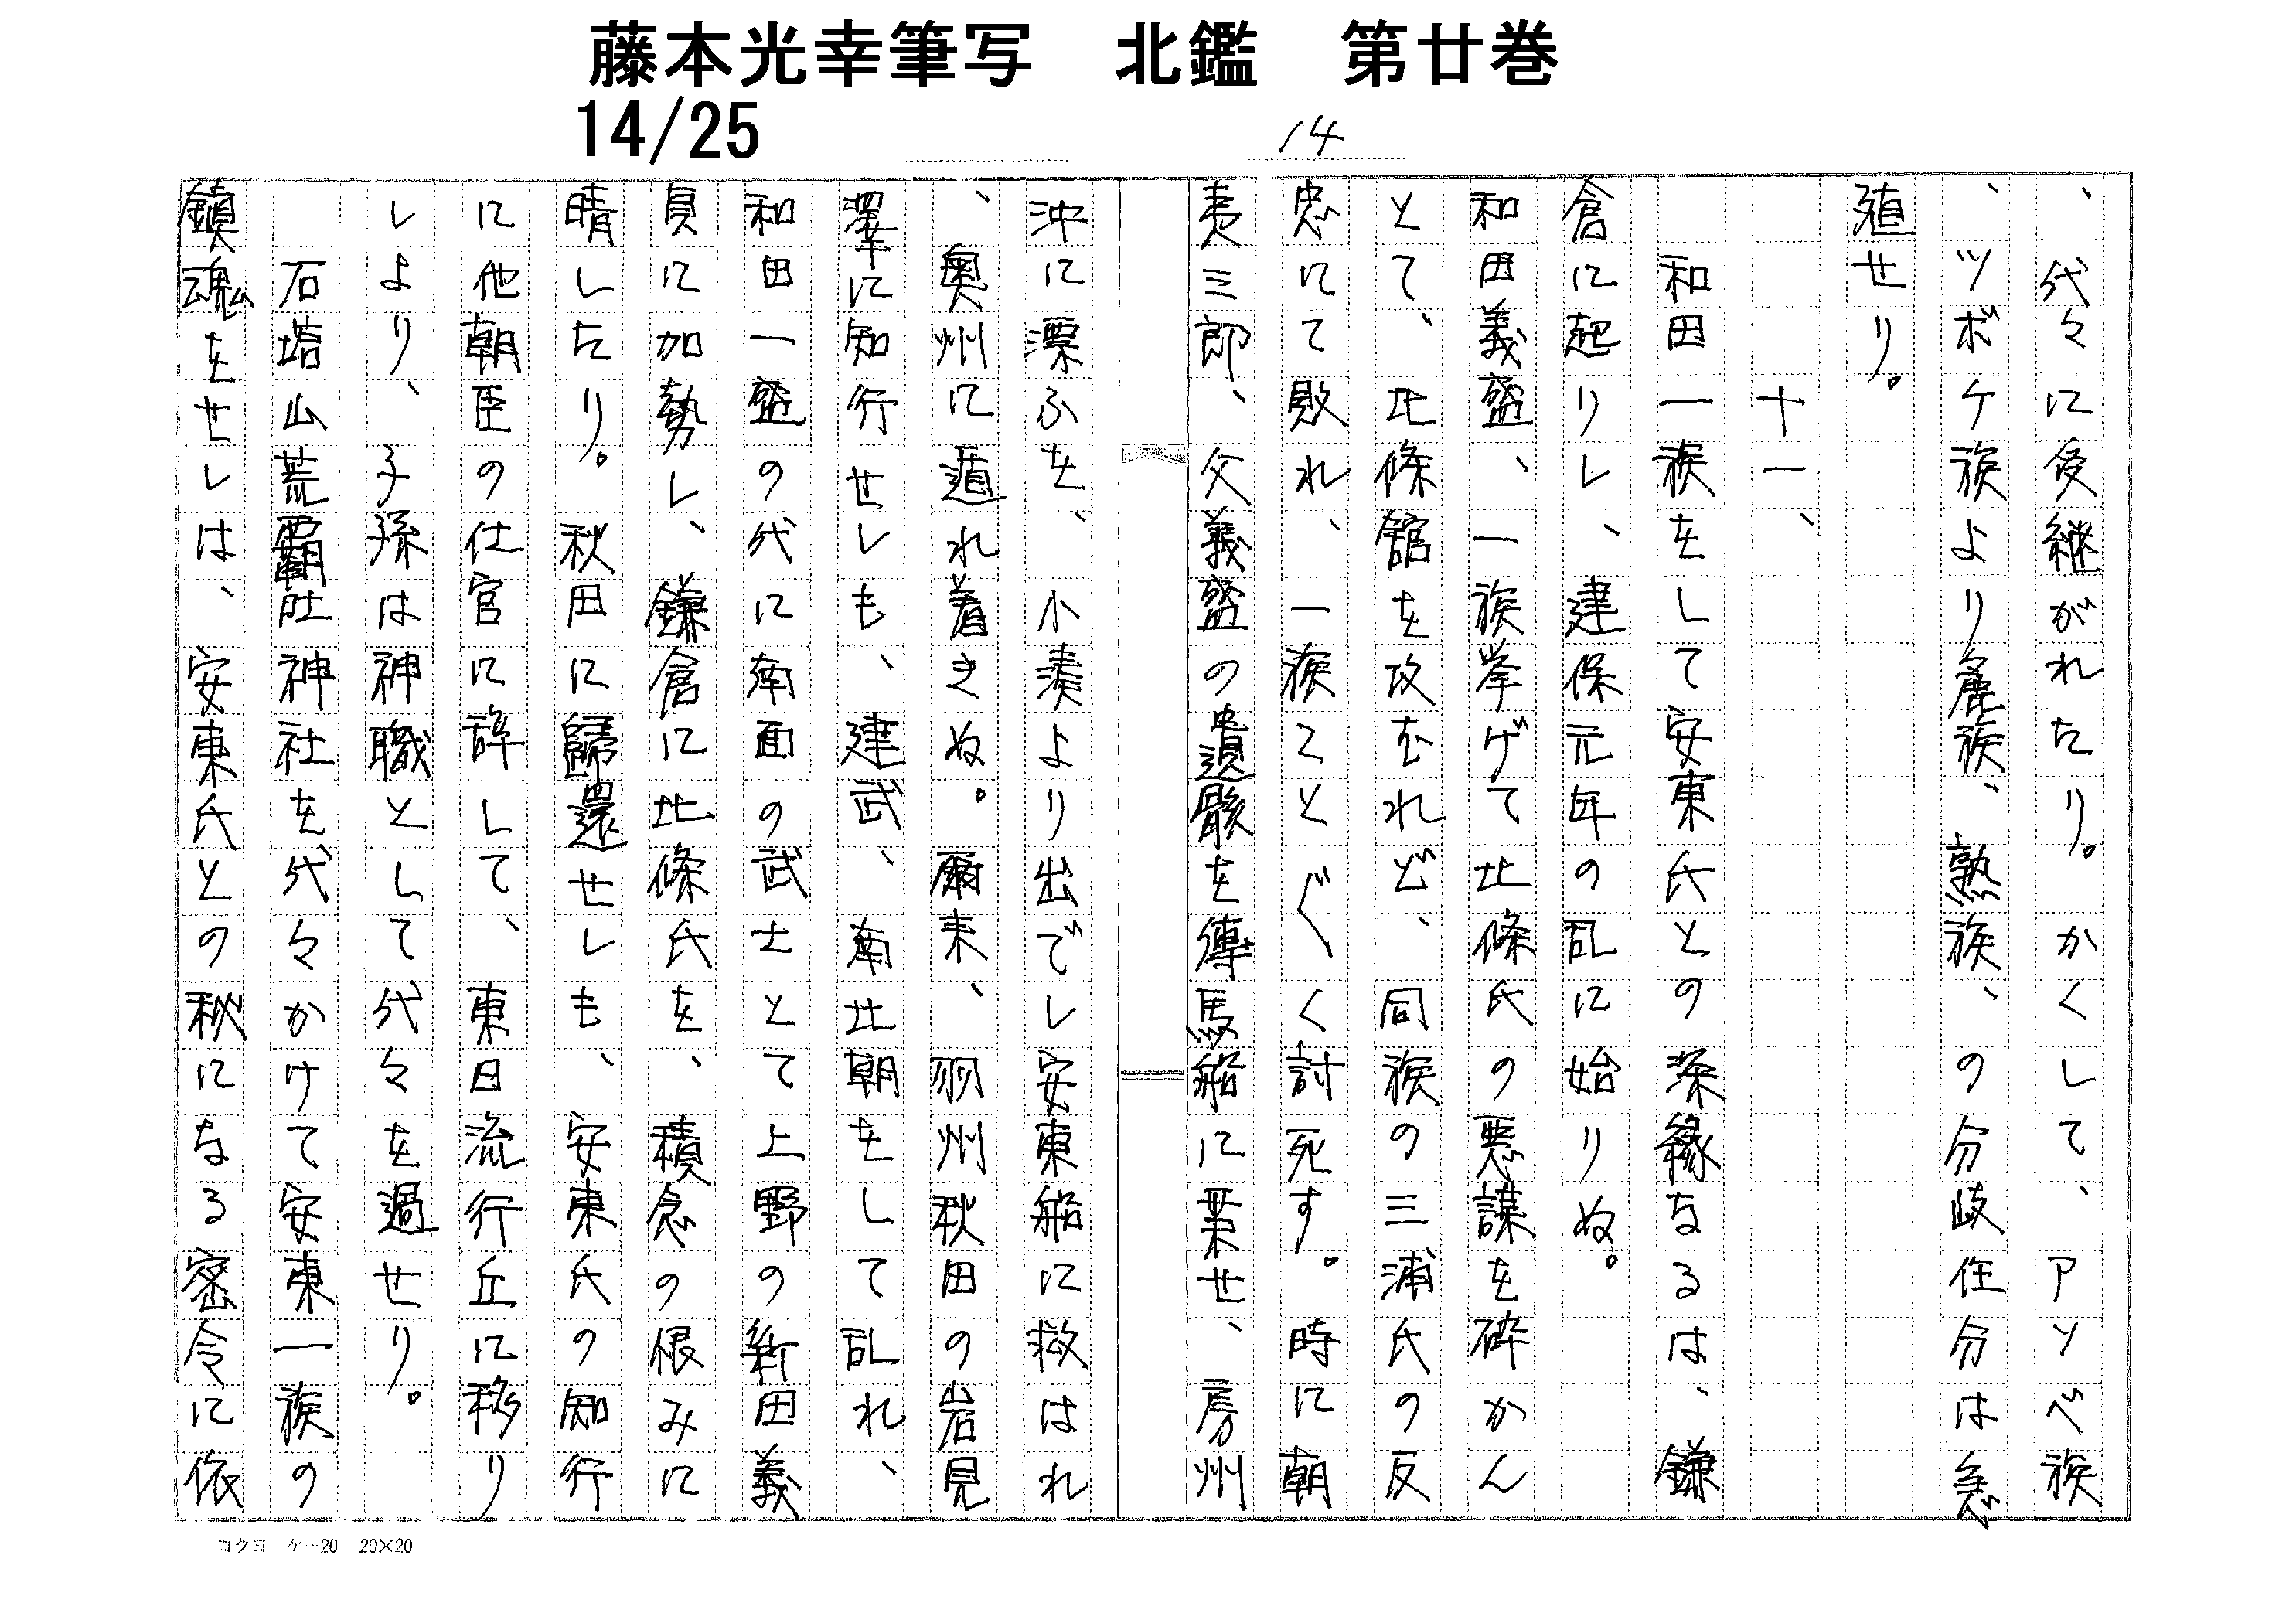 藤本光幸筆写　北鑑　第廿巻
14/25
14
、代々に受継がれたり。かくして、アソベ族
、ツボケ族より麁族、熟族、の分岐住分は急
殖せり。
十一、
和田一族をして安東氏との深縁なるは、鎌
倉に起りし、建保元年の乱に始りぬ。
和田義盛、一族挙げて北條氏の悪謀を砕かん
とて、北條舘を攻むれど、同族の三浦氏の反
忠にて敗れ、一族ことぐく討死す。時に朝
夷三郎、父義盛の遺骸を傳馬船に乗せ、房州
沖に漂ふを、小湊より出でし安東船に救はれ
、奥州に遁れ着きぬ。爾来、羽州秋田の岩見
澤に知行せしも、建武、南北朝をして乱れ、
和田一盛の代に南面の武士とて上野の新田義
貞に加勢し、鎌倉に北條氏を、積念の恨みに
晴したり。秋田に歸還せしも、安東氏の知行
に他朝臣の仕官に辞して、東日流行丘に移り
しより、子孫は神職として代々を過せり。
石塔山荒覇吐神社を代々かけて安東一族の
鎮魂をせしは、安東氏との秘になる密令に依
コクヨ　ケ-20　20×20